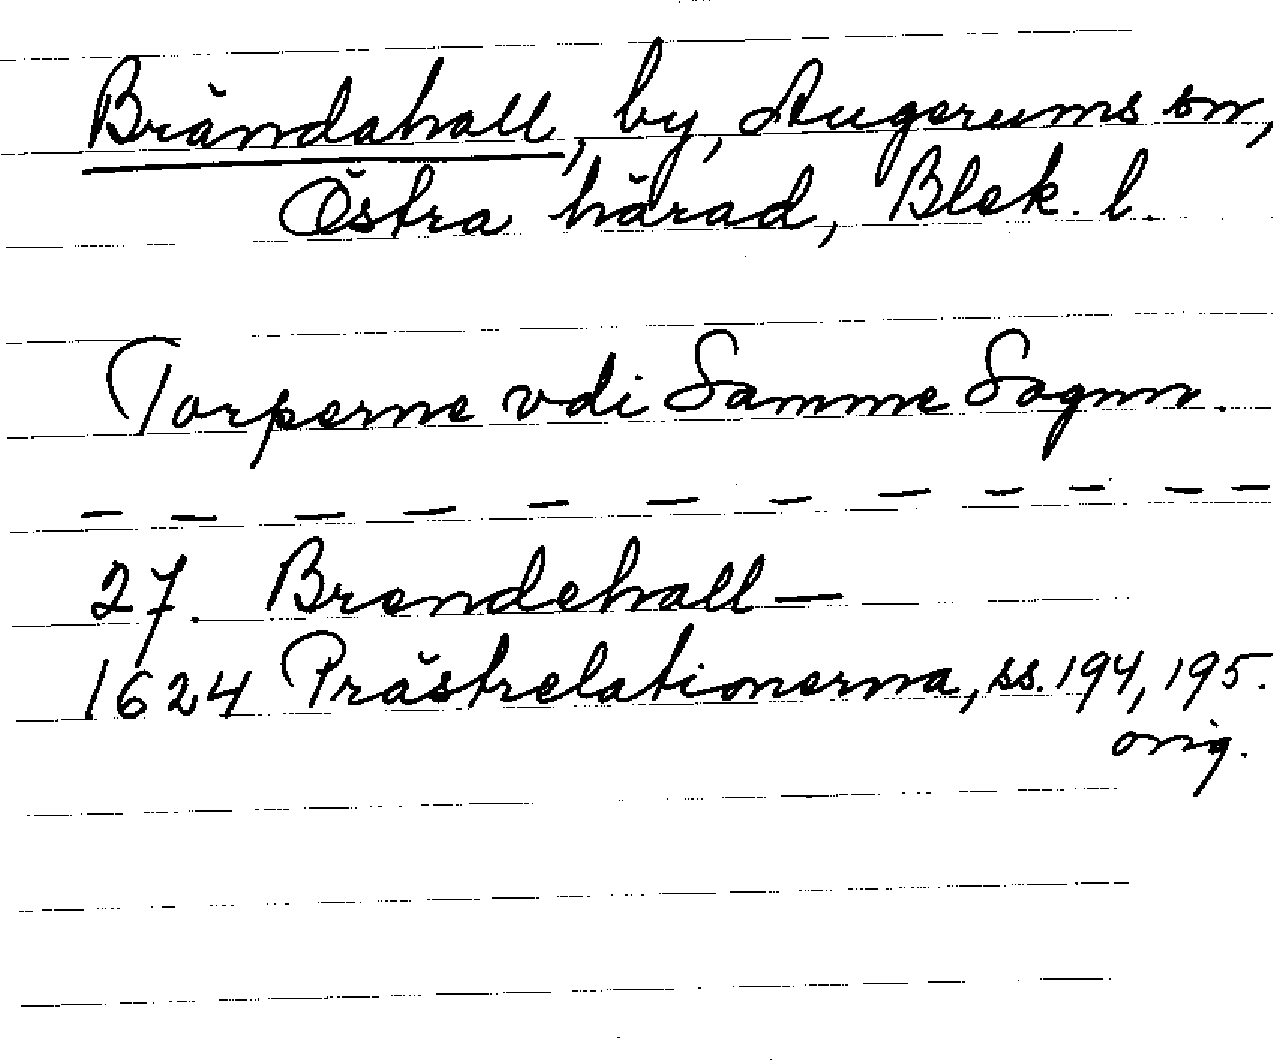 Brändahall, by, Augerums sn,
Östra härad, Blek. l.
Torperne vdi Samme Sognn.
– – – – – – – – – – –
27. Brendehall —
1624 Prästrelationerna, ss. 194, 195.
orig.